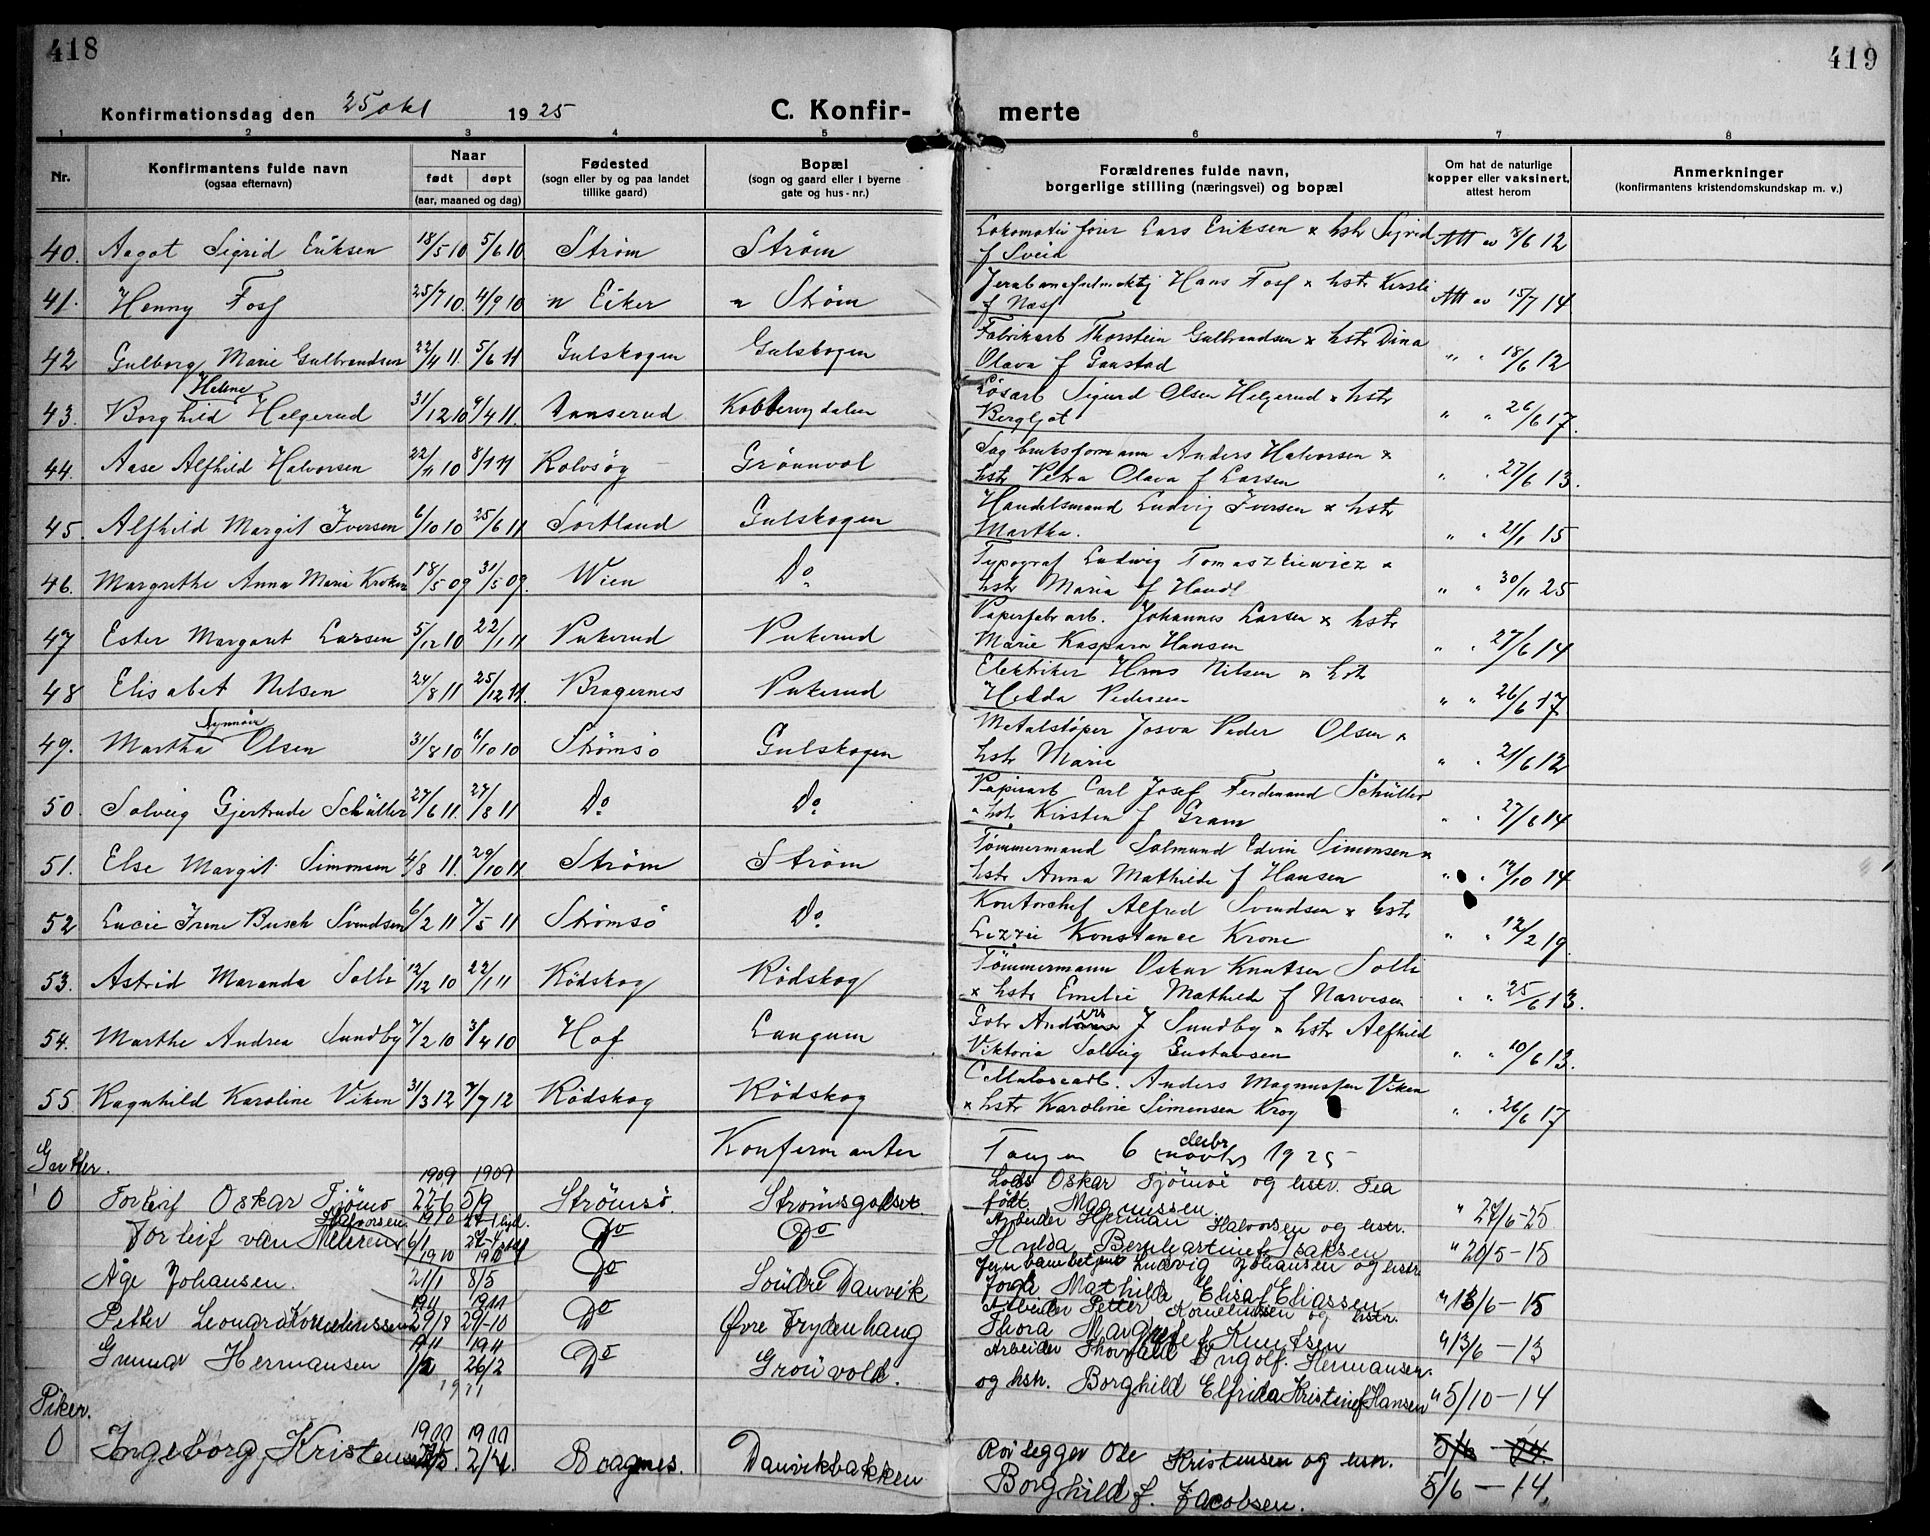 418
419
Konfirmationsdag den 25 okt 1925
C. Konfir- merte
1 2 3 4 5 6 7 8
Nr. Konfirmantens fulde navn (ogsaa efternavn) Naar født døpt (aar, maaned og dag) Fødested (sogn eller by og paa landet tillike gaard) Bopæl (sogn og gaard eller i byerne gate og hus-nr.) Forældrenes fulde navn, borgerlige stilling (næringsvei) og bopæl Om hat de naturlige kopper eller vaksinert, attest herom Anmerkninger (konfirmantens kristendomskundskap m. v.)
40. Aagot Sigrid Eriksen 18/5 10 5/6 10 Strøm Strøm Lokomotivfører Lars Eriksen x hstr Sigrid
f Sveia Att av /6 12
41. Henny Foss 25/7 10. 4/9 10 n Eiker n Strøm Jernbanefulmektig Hans Foss x hstr Kersti
f Næss Att av 15/7 14
42 Gulborg Marie Gulbrandsen 22/4 11. 5/6 11 Gulskogen Gulskogen Fabrikarb Thorstein Gulbrandsen x hstr Dina
Olava f Gaustad " " 18/6 12
Helene
43. Borghild Helgerud 31/12 10 9/4 11. Danserud Kobbervydalen Løsarb Sigurd Olsen Helgerud x hstr
Bergljot " " 26/6 17.
44. Aase Alfhild Halvorsen 22/11 10 8/1 11 Kolvsøy Grønnvol Sagbruksformann Anders Halvorsen x
hstr Petra Olava f Larsen " " 27/6 13.
45. Alfhild Margit Iversen 6/10 10 25/6 11 Sortland Gulskogen Handelsmand Ludvig Iversen x hstr
Martha. " " 21/1 15
46. Margrethe Anna Maria 18/5 09 31/5 09. Wien Do Typograf Ludwig Tomaszkiewicz x
hstr Maria f Haudl " " 30/11 25
47 Ester Margaret Larsen 5/12 10 22/1 11 Pukerud Pukerud Papirfabr arb. Johannes Larsen x hstr
Marie Kaspara Hansen " " 27/6 14
48 Elisabet Nilsen 24/8 11 25/12 11. Bragernes Pukerud Elektriker Hans Nilsen x hstr
Hedda Pedersen " " 26/6 17
Synnøve
49. Martha Olsen 31/8 10 /10 10 Strømsø Gulskogen Metalstøper Josva Peder Olsen x
hstr Marie " " 21/6 12
50. Solveig Gjertrude Schüller 27/6 11. 27/8 11 Do Do Papirarb Carl Josef Ferdinand Schüller
x hstr Kirsten f Gram " " 27/6 14
51. Else Margit Simonsen 4/8 11. 29/10 11 Strøm Strøm Tømmermand Salmund Edvin Simonsen x
hstr Anna Mathilde f Hansen " " 12/10 14
52 Lucie Irene Busch Svendsen 6/2 11 7/5 11 Strømsø Do Kontorchef Alfred Svendsen x hstr
Lizzie Konstance Krone " " 12/2 19.
53. Astrid Maranda Solli 12/12 10 22/1 11 Rødskog Rødskog Tømmermann Oskar Knutsen Solli
x hstr Emelie Mathilde f Narvesen " " 25/6 13.
54. Marthe Andrea Sundby 7/2 10 3/4 10 Hof Langum Gbr Anders J Sundby x hstr Alfhild
Viktoria Solveig Gustavsen " " 10/6 13.
55 Ragnhild Karoline Viken 31/3 12 7/7 12 Rødskog Rødskog Cellulosearb. Anders Magnussen Viken
x hstr Karoline Simensen Krog " " 26/6 17
Gutter. Konfirmanter Tangen 6 decbr 1925
0 Torleif Oskar Tjömö 1909 22-6 1909 5/9 Strömsö. Strömsgodset Lods Oskar Tjömöe og hstr. Tea
født Magnussen. " 27/6-25
Halvorsen
Torleif van 1910 6/1 27-1 Do Do Arbeider Herman Halvorsen og hstr.
Hulda Bernhartine f Isaksen " 20/5-15
Åge Johansen. 1910 21/1 1910 8/5 Do Söndre Danvik Jernbanebetjent Ludvig Johansen og hstr
Mathilde Elisa f Eliassen " 13/6-15
Petter Leonard Korneliussen 1911 29/8 1911 29-10 Do Øvre Frydenhaug Arbeider Petter Korneliussen og hstr.
Thora Margrete f Knutsen " 13/6-13
Gunnar Hermansen 1911 1911 26/2 Do Grönvold. Arbeider Thorvald Ingolf. Hermansen
og hstr. Borghild Elfrida Kristine f Hansen " 5/10-14
Piker.
0 Ingeborg Kristensen Bragnes. Danvikbakken Rörlegger Ole Kristensen og hstr.
Borghild f. Jacobsen. 5/6-14.